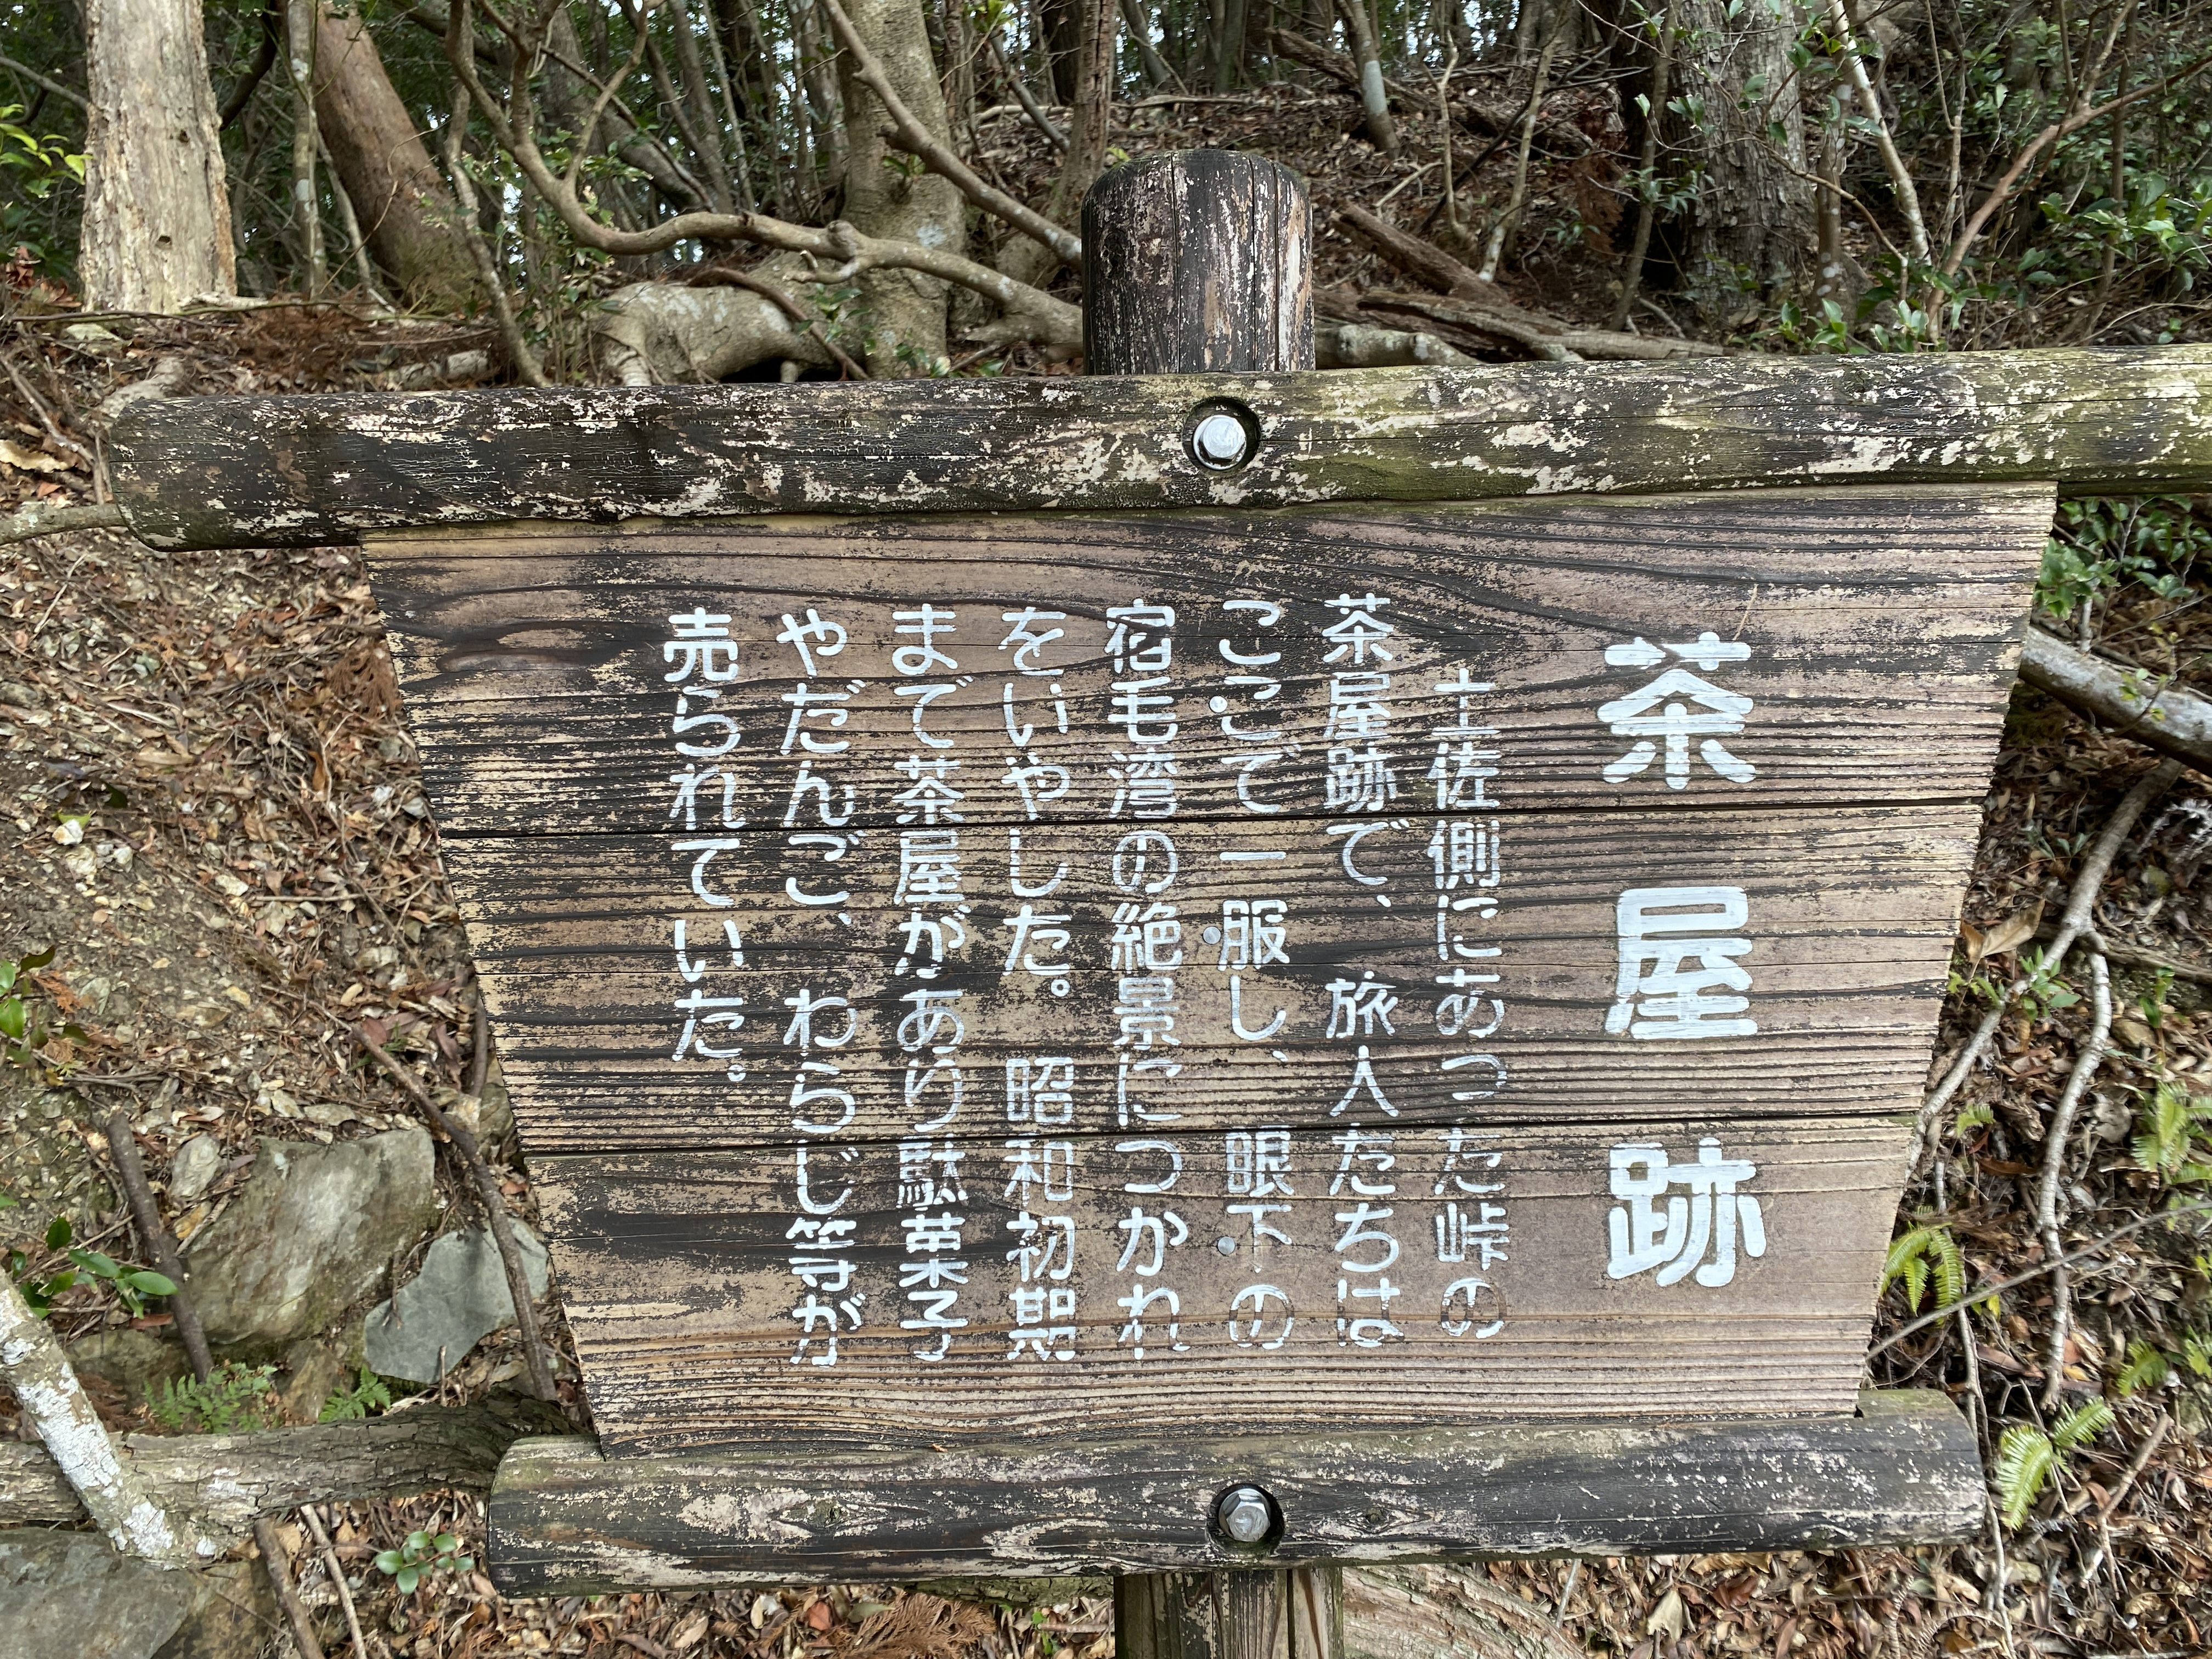 茶屋跡
土佐側にあった峠の
茶屋跡で、旅人たちは
ここで一服し、眼下の
宿毛湾の絶景につかれ
をいやした。昭和初期
まで茶屋があり駄菓子
やだんご、わらじ等が
売られていた。